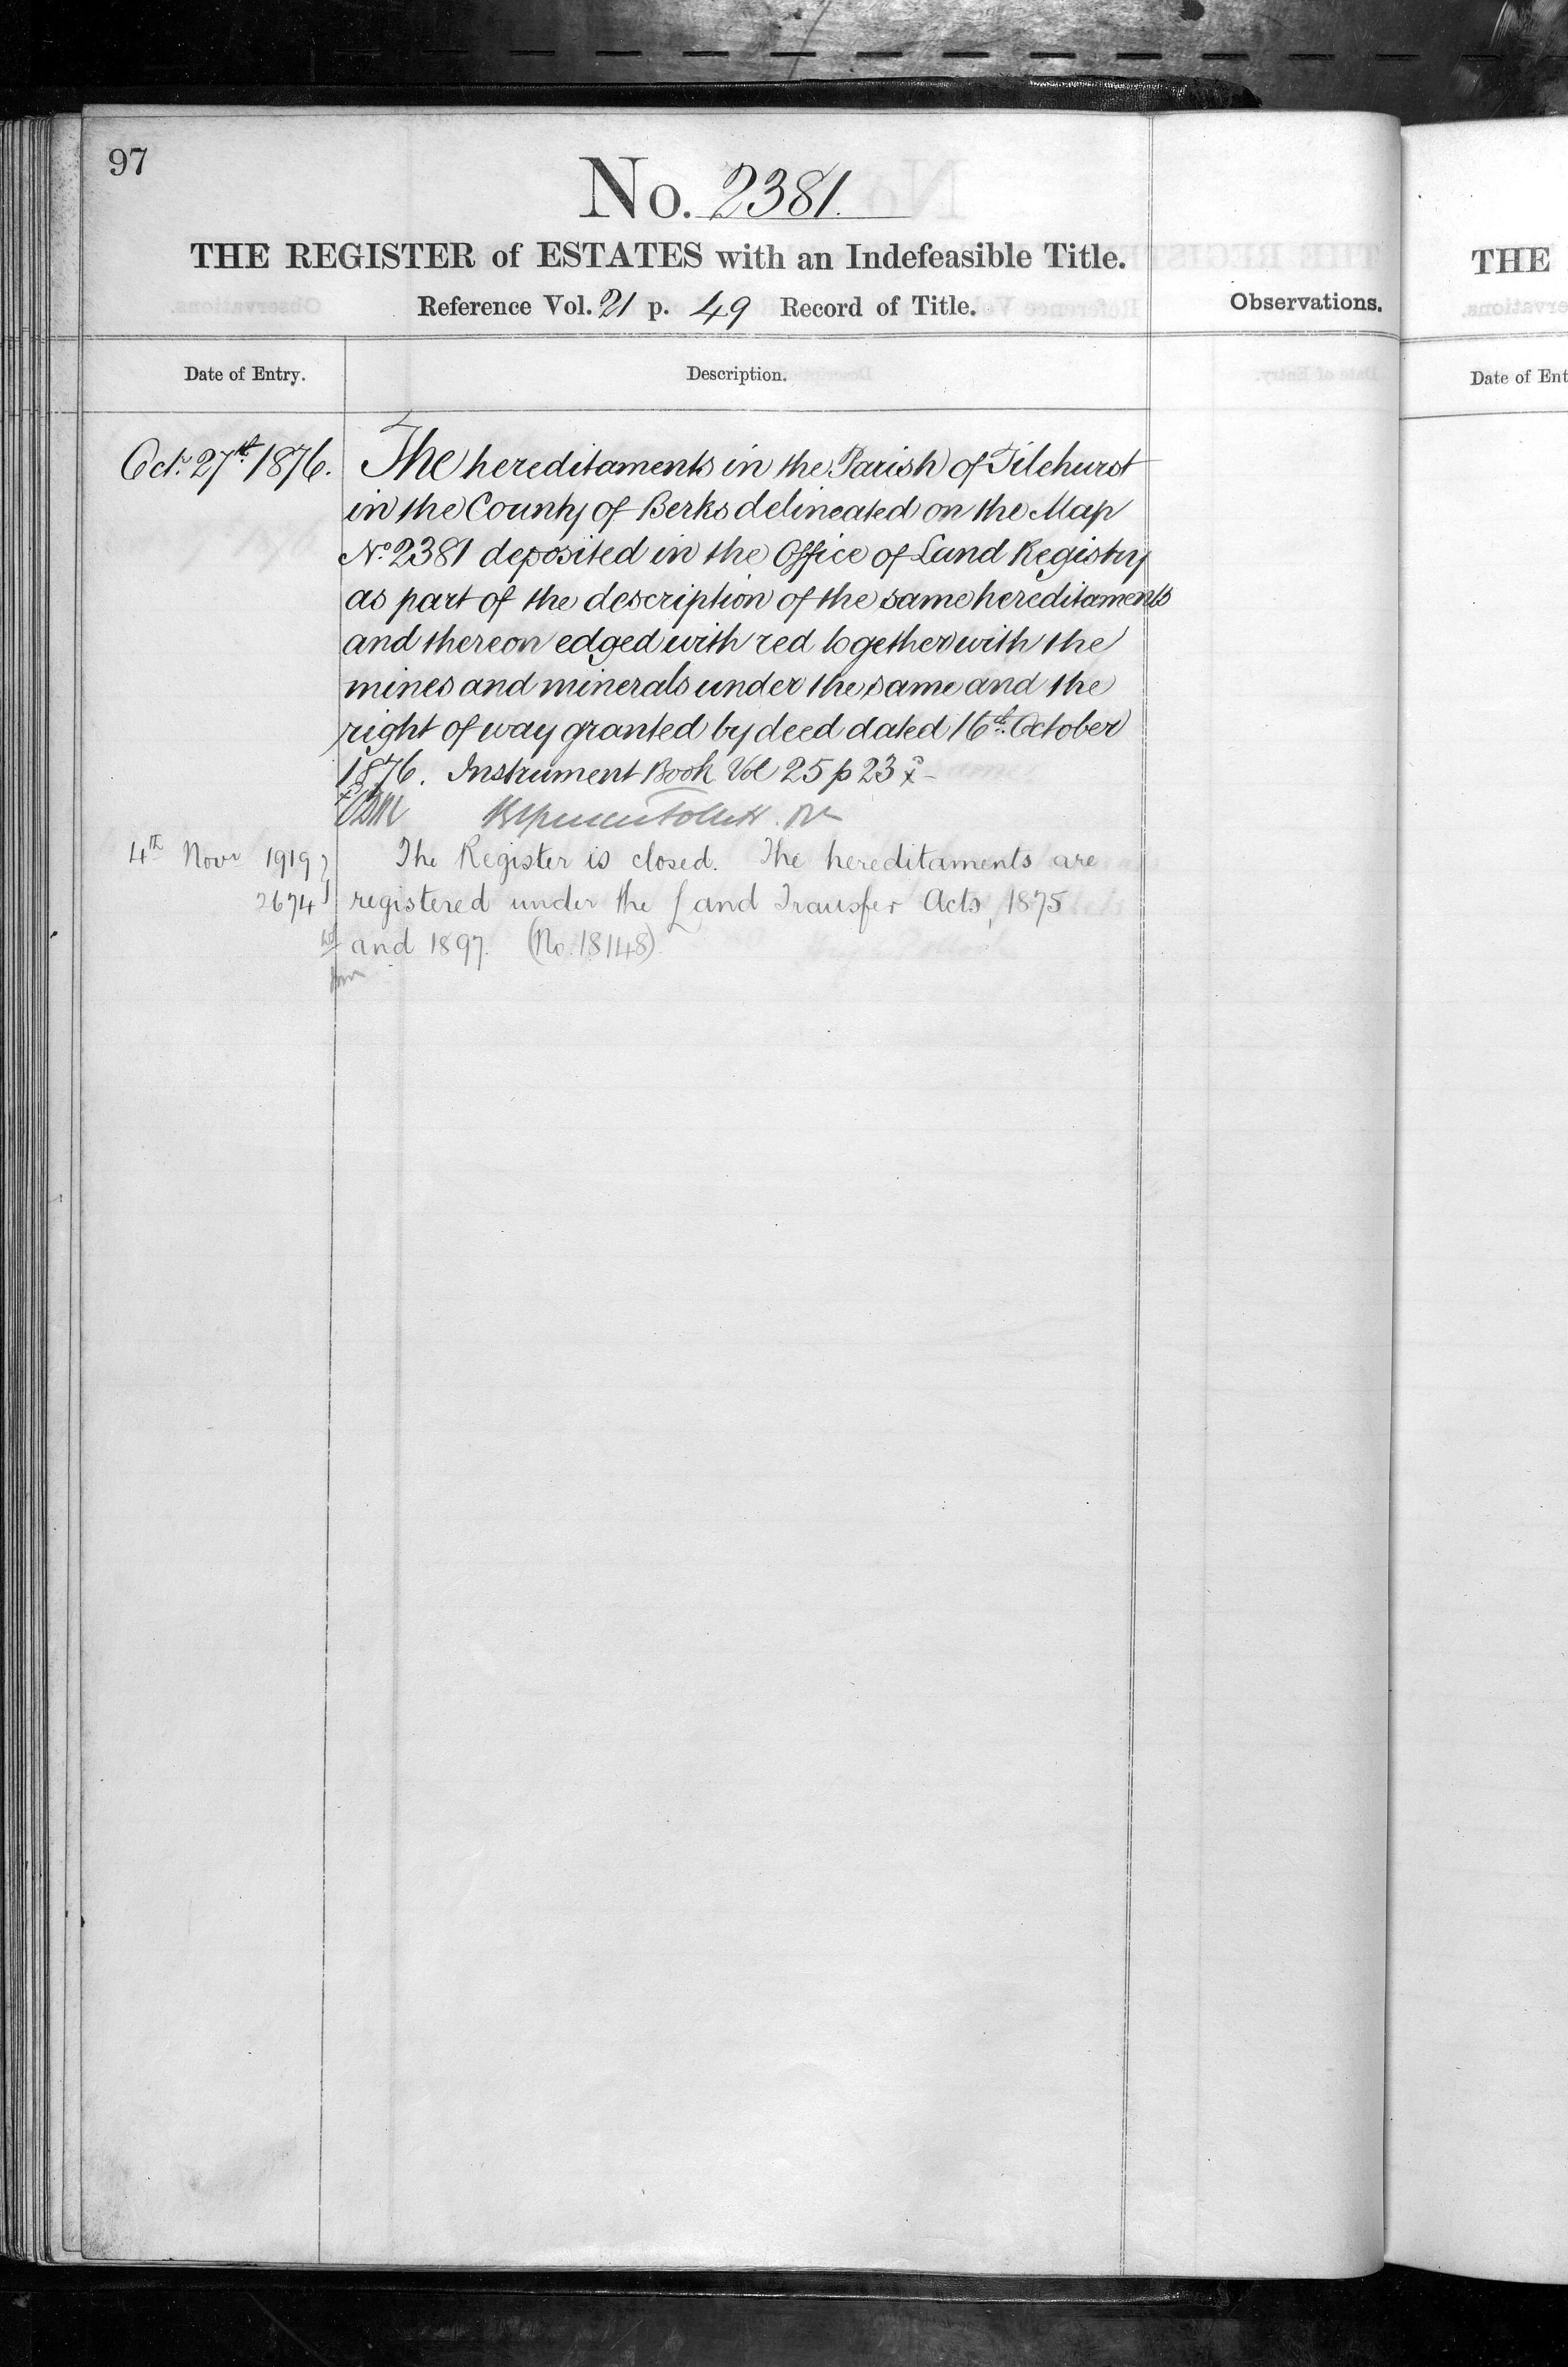 97
No. 2381.
THE REGISTER of ESTATES with an Indefeasible Title.
Reference Vol. 21 p. 49 Record of Title.
Observations.
Date of Entry.
Description.
Octr. 27th. 1876.
The hereditaments in the Parish of Tilehurst
in the County of Berks delineated on the Map
No. 2381 deposited in the Office of Land Registry
as part of the description of the same hereditaments
and thereon edged with red together with the
mines and minerals under the same and the
right of way granted by deed dated 16th. October
1876. Instrument Book Vol 25 p 23
4th Novr 1919
2674
The Register is closed. The hereditaments are
registered under the Land Transfer Acts, 1875
and 1897. (No. 18148).
THE
Date of Ent